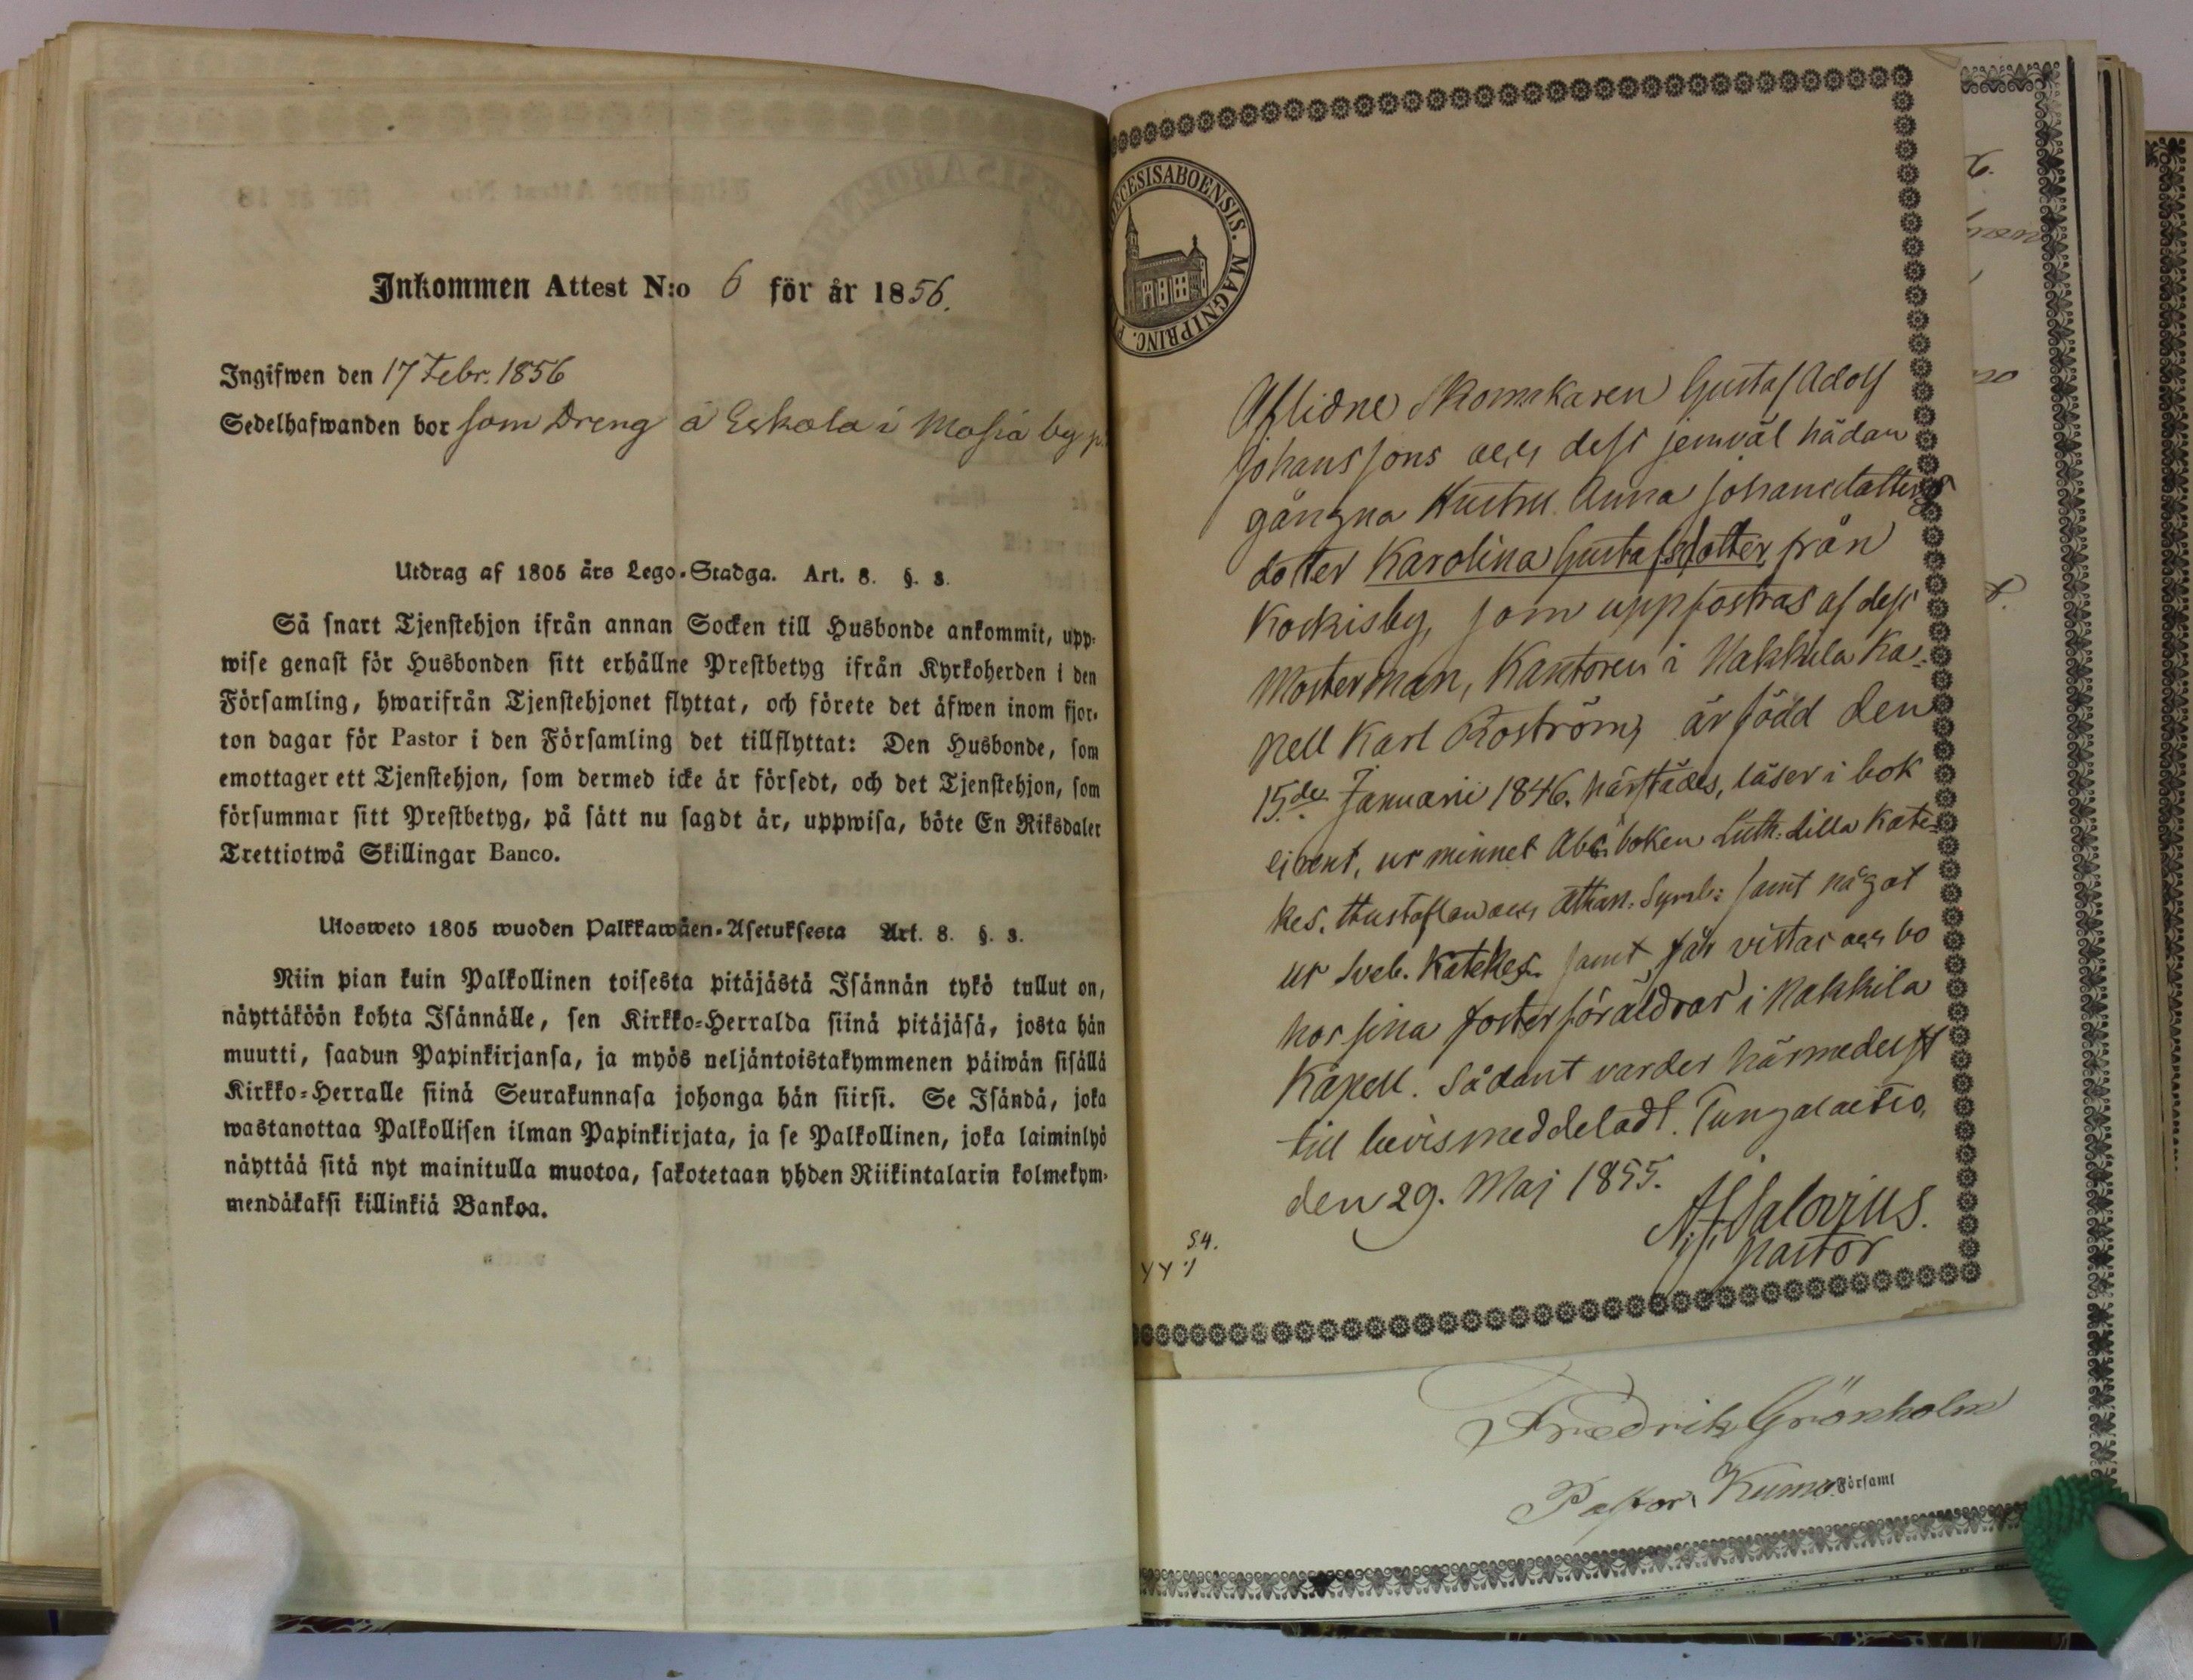 Inkommen Attest N:o 6 för år 1856.
Ingifwen den 17 Febr. 1856
Sedelhafwanden bor som Dreng å Eskola i Masia by
Utdrag af 1805 års Lego-Stadga. Art. 8. §. 3.
Så snart Tjenstehjon ifrån annan Socken till Husbonde ankommit, upp-
wise genast för Husbonden sitt erhållne Prestbetyg ifrån Kyrkoherden i den
Församling, hwarifrån Tjenstehjonet flyttat, och förete det äfwen inom fjor-
ton dagar för Pastor i den Församling det tillflyttat: Den Husbonde, som
emottager ett Tjenstehjon, som dermed icke är försedt, och det Tjenstehjon, som
försummar sitt Prestbetyg, på sätt nu sagdt är, uppwisa, böte En Riksdaler
Trettiotwå Skillingar Banco.
Ulosweto 1805 wuoden Palkkawäen-Asetuksesta Art. 8. §. 3.
Niin pian kuin Palkollinen toisesta pitäjästä Isännän tykö tullut on,
näyttäköön kohta Isännälle, sen Kirkko-Herralda siinä pitäjäsä, josta hän
muutti, saadun Papinkirjansa, ja myös neljäntoistakymmenen päiwän sisällä
Kirkko-Herralle siinä Seurakunnasa johonga hän siirsi. Se Isändä, joka
wastanottaa Palkollisen ilman Papinkirjata, ja se Palkollinen, joka laiminlyö
näyttää sitä nyt mainitulla muotoa, sakotetaan yhden Riikintalarin kolmekym-
mendäkaksi killinkiä Bankoa.
ECESISABOENSIS. MAGNIPRINC. F
Aflidne Skomakaren Gustaf Adolf
Johanssons och dess jemväl hädan
gångna Hustru Anna Johansdotters
dotter Karolina Gustafsdotter från
Kockisby, som uppfostras af dess
Mosterman, Kantoren i Nakkila Ka-
pell Karl Roström, är född den
15.de Januarii 1846. härstädes, läser i bok
ej rent, ur minnet Abcboken Luth. Lilla Kate-
kes. Hustaflan och Athan. Symb: samt något
ur Sveb. Katekes. samt får vistas och bo
hos sina fosterföräldrar i Nakkila
Kapell. Sådant varder härmedelst
till bevis meddeladt.
den 29. Maj 1855.
A. F. Salovius.
Pastor
S4.
Fredrik Grönholm
Pastor i Kumo Församl